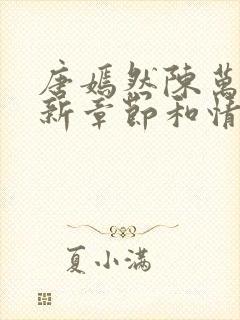 唐嫣然陳萬
新章節和情
夏小滿